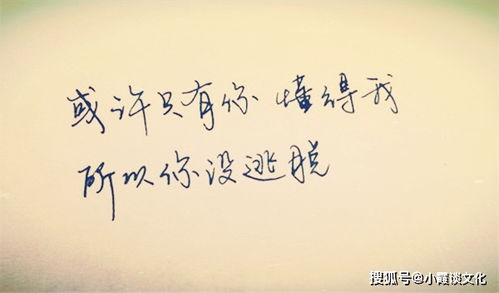 或许只有你 懂得我
所以你没逃脱
搜狐号@小霞谈文化